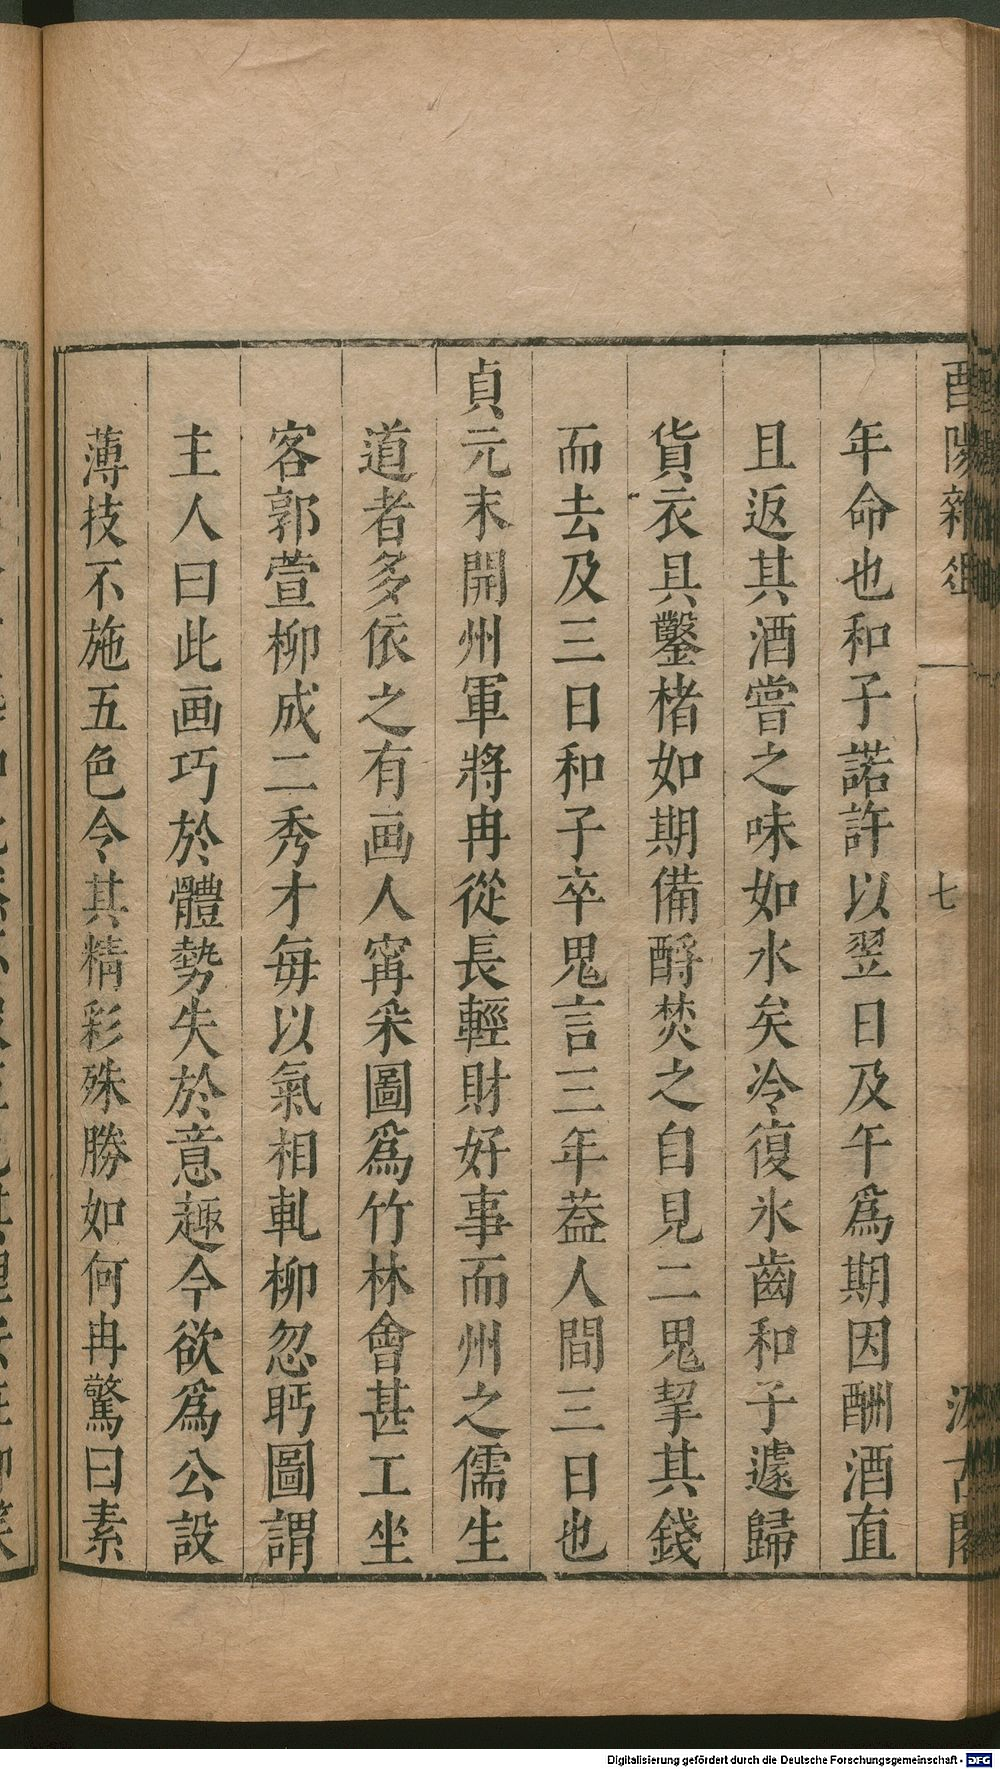 酉陽雜俎
七
汲古閣
年命也和子諾許以翌日及午爲期因酬酒直
且返其酒嘗之味如水矣冷復氷齒和子遽歸
貨衣具鑿楮如期備酹焚之自見二鬼挈其錢
而去及三日和子卒鬼言三年葢人間三日也
貞元末開州軍將冉從長輕財好事而州之儒生
道者多依之有画人甯采圖爲竹林會甚工坐
客郭萱柳成二秀才每以氣相軋柳忽眄圖謂
主人曰此画巧於體勢失於意趣今欲爲公設
薄技不施五色令其精彩殊勝如何冉驚曰素
Digitalisierung gefördert durch die Deutsche Forschungsgemeinschaft - DFG